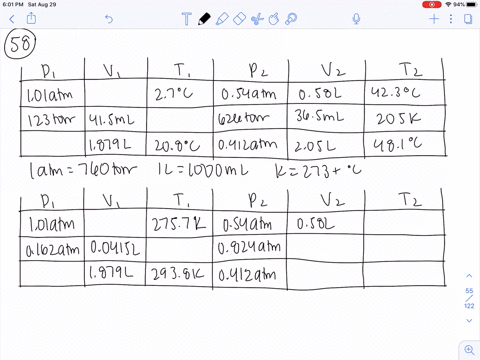 6:01 PM Sat Aug 29
94%
58
P1 V1 T1 P2 V2 T2
1.01atm 2.7°C 0.54atm 0.58L 42.3°C
123torr 41.5mL 626torr 36.5mL 205K
1.879L 20.8°C 0.412atm 2.05L 48.1°C
1atm=760torr 1L=1000mL K=273+°C
P1 V1 T1 P2 V2 T2
1.01atm 275.7K 0.54atm 0.58L
0.162atm 0.0415L 0.824atm
1.879L 293.8K 0.412atm
55
/
122